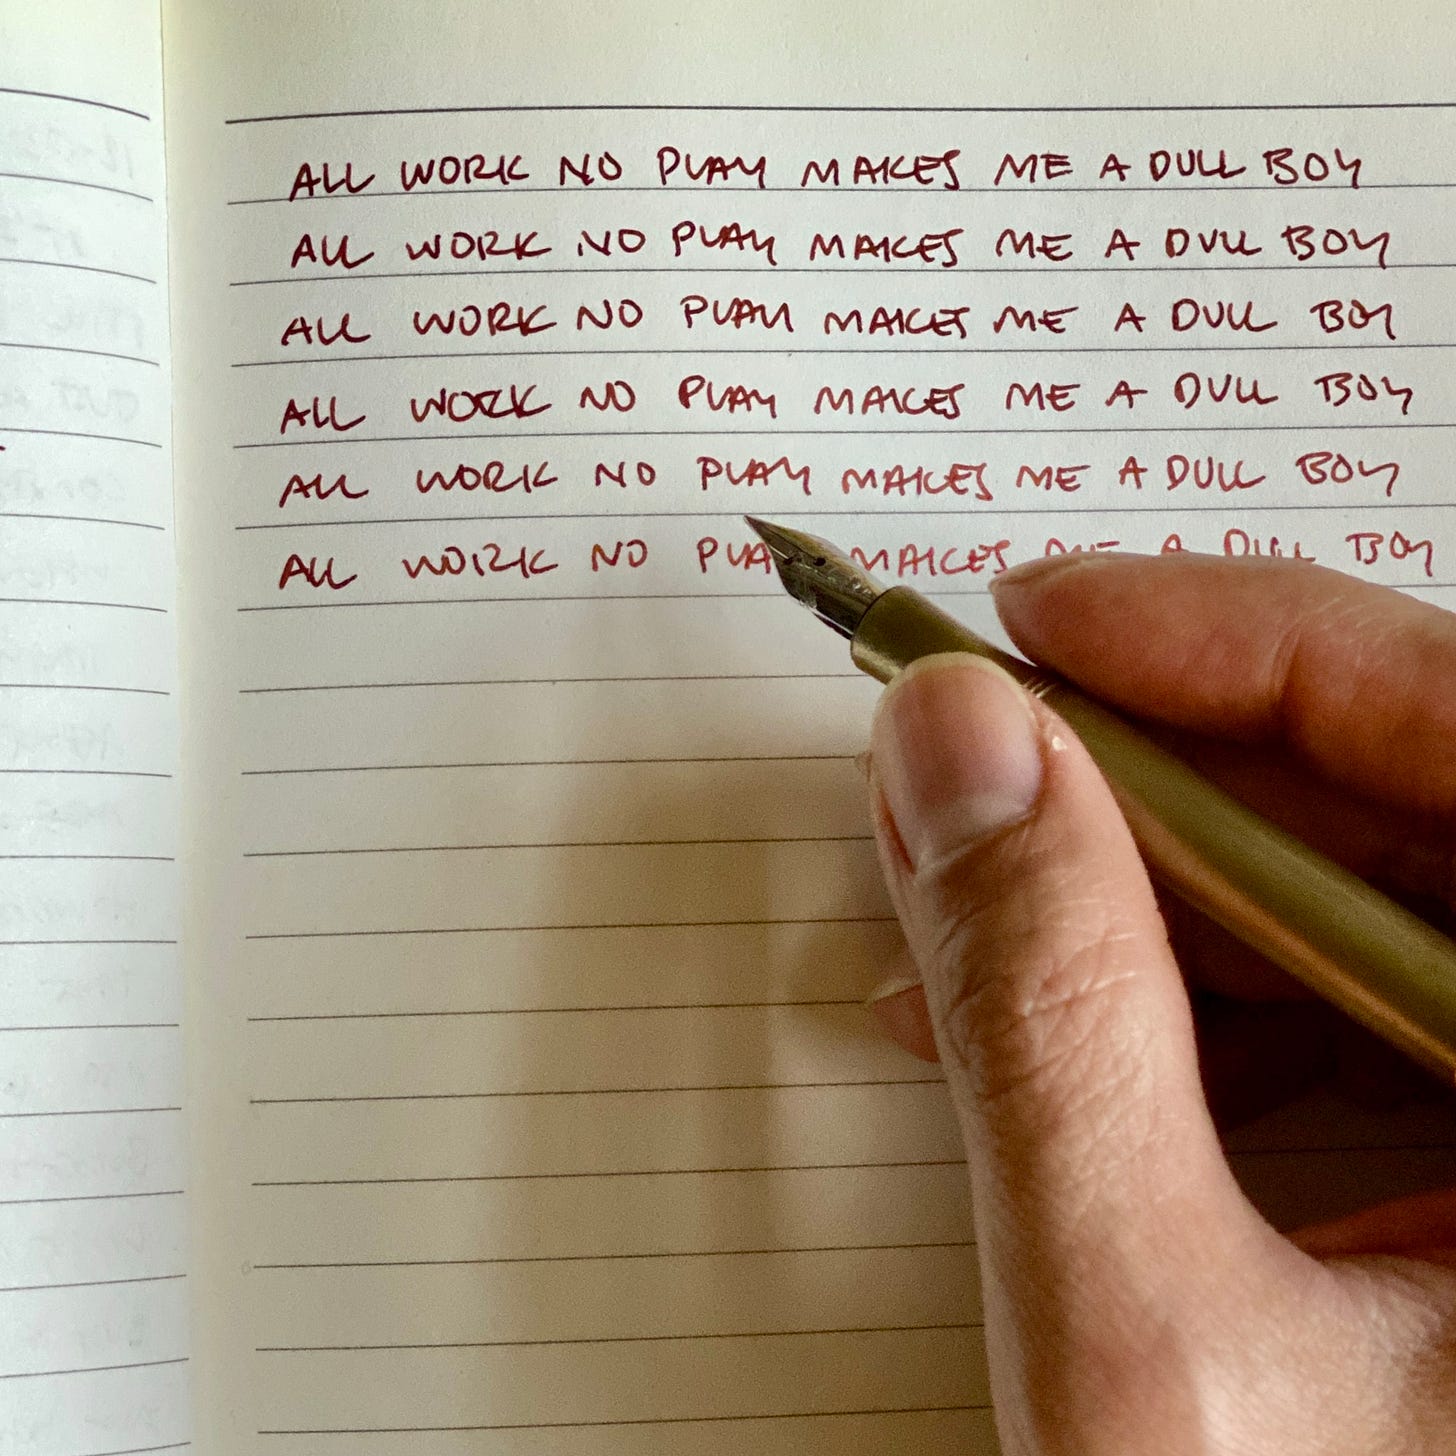 ALL WORK NO PLAY MAKES ME A DULL BOY
ALL WORK NO PLAY MAKES ME A DULL BOY
ALL WORK NO PLAY MAKES ME A DULL BOY
ALL WORK NO PLAY MAKES ME A DULL BOY
ALL WORK NO PLAY MAKES ME A DULL BOY
ALL WORK NO PLAY MAKES ME A DULL BOY